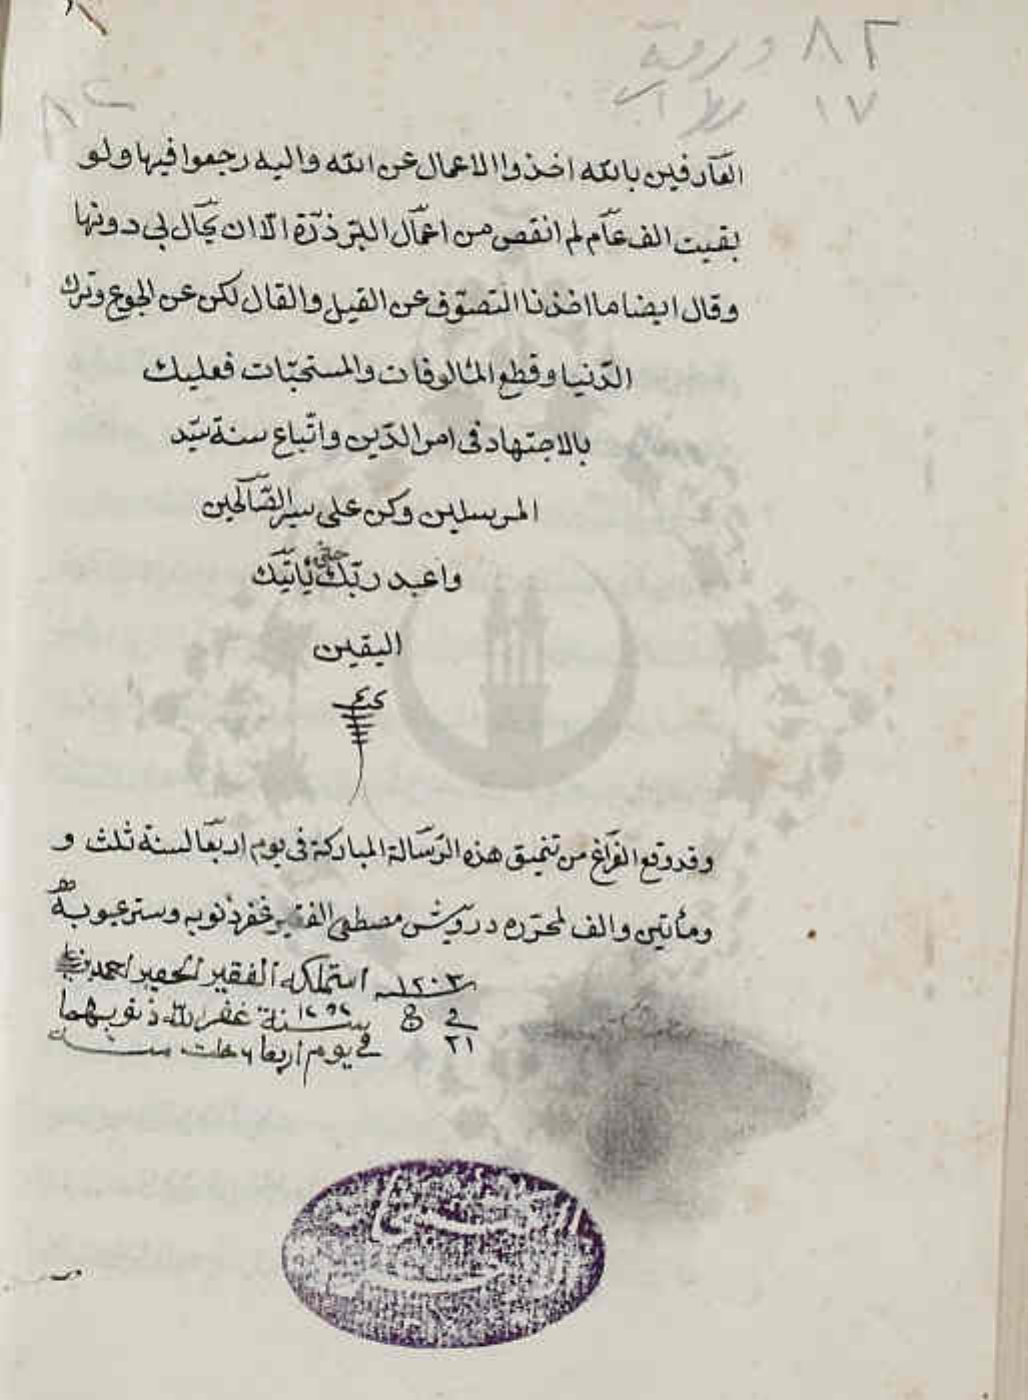 ٨٢ ورقة
١٧ سطرا
٨٢
العارفين بالله اخذوا الاعمال عن الله واليه رجعوا فيها ولو
بقيت الف عام لم انقص من اعمال البر ذرة الا ان يحال بي دونها
وقال ايضا ما اخذنا التصوف عن القيل والقال لكن عن الجوع وترك
الدنيا وقطع المالوفات والمستحبّات فعليك
بالاجتهاد فى امر الدّين واتّباع سنة سيّد
المرسلين وكن على سير الصّالحين
واعبد ربّك حتى ياتيك
اليقين
وقد وقع الفراغ من تنميق هذه الرّسالة المباركة فى يوم اربعا لسنة ثلث و
ومأتين والف لمحرّره درويش مصطفى الفقير غفر ذنوبه وستر عيوبه
١٢٠٣ استملكه الفقير الحقير احمد
في 8 سنة غفر الله ذنوبهما
٢١ في يوم اربعا